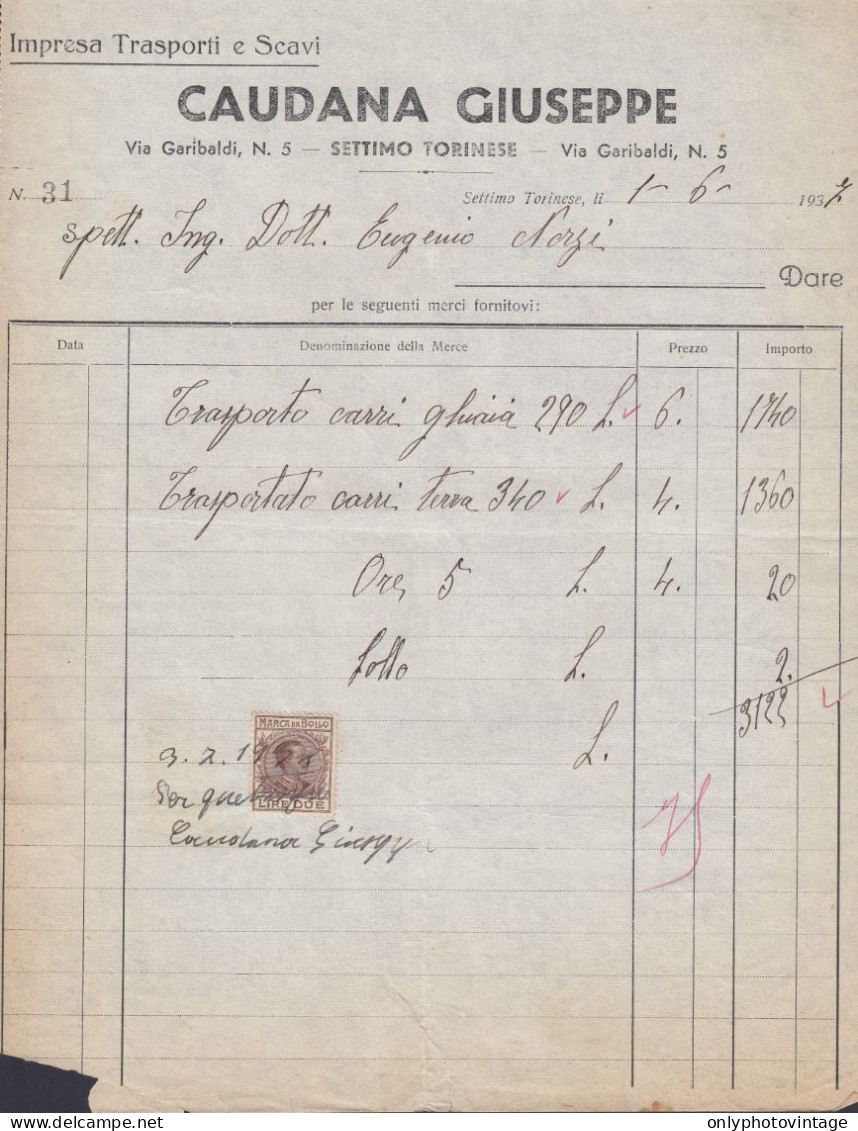 Impresa Trasporti e Scavi
CAUDANA GIUSEPPE
Via Garibaldi, N. 5 — SETTIMO TORINESE — Via Garibaldi, N. 5
N. 31 Settimo Torinese, li 1 - 6 - 1937
Spett. Ing. Dott. Eugenio Norzi
Dare
per le seguenti merci fornitovi:
Data Denominazione della Merce Prezzo Importo
Trasporto carri ghiaia 290 L. 6. 1740
Trasportato carri terra 340 L. 4. 1360
Ore 5 L. 4. 20
bollo L. 2.
L. 3122
MARCA DA BOLLO
LIRE DUE
Per
Caudana Giuseppe
onlyphotovintage